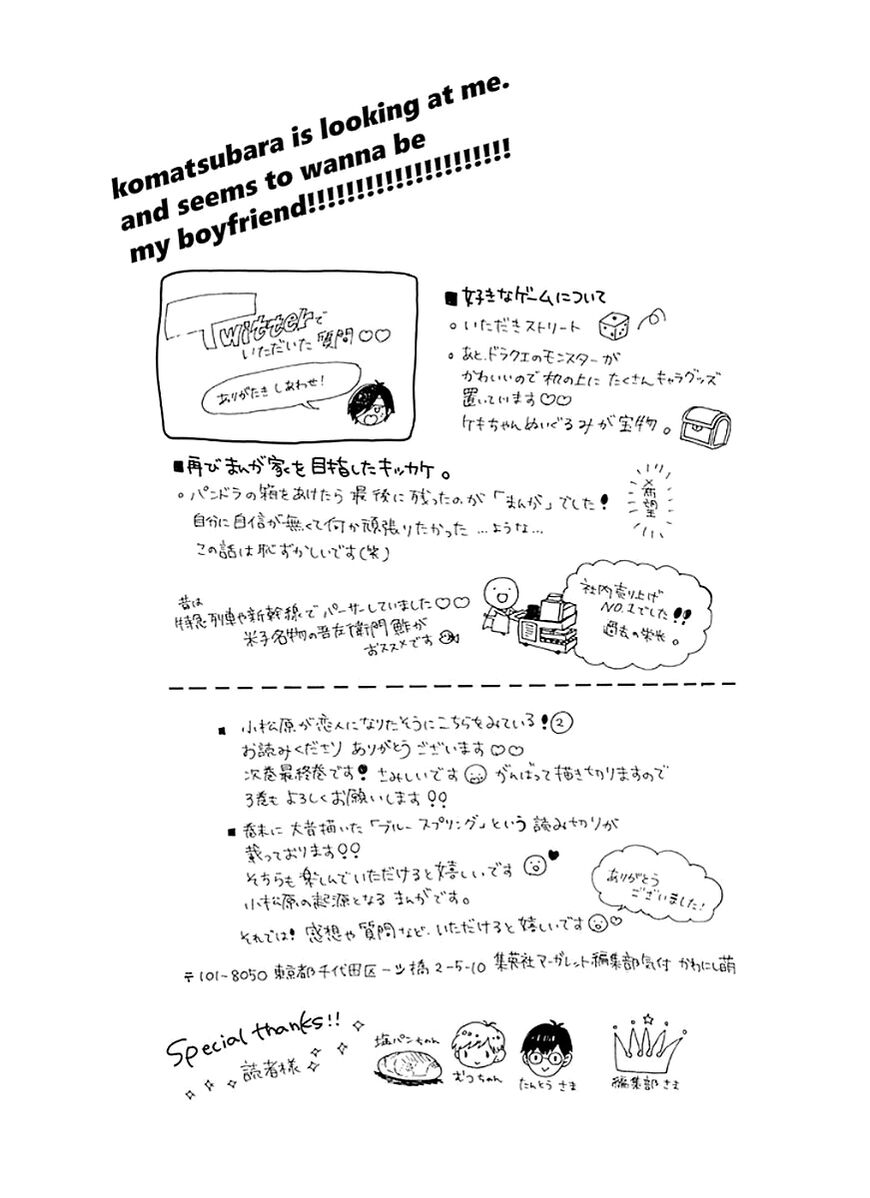 komatsubara is looking at me.
and seems to wanna be
my boyfriend!!!!!!!!!!!!!!!!!!!!!
Twitterで
いただいた質問♡♡
ありがたきしあわせ!
■好きなゲームについて
○いただきストリート
○あと、ドラクエのモンスターが
かわいいので机の上に たくさんキャラグッズ
置いています♡♡
ケキちゃんぬいぐるみが宝物。
■再びまんが家を目指したキッカケ。
○パンドラの箱をあけたら 最後に残ったのが「まんが」でした!
希望
自分に自信が無くて何か頑張りたかった …ような…
この話は恥ずかしいです(笑)
昔は
特急列車や新幹線でパーサーしていました♡♡
米子名物の吾左衛門鮓が
おススメです
社内売り上げ
NO.1でした!!
過去の栄光。
■ 小松原が恋人になりたそうにこちらをみている!②
お読みくださり ありがとうございます♡♡
次巻最終巻です! さみしいです がんばって描き切りますので
3巻も よろしくお願いします!!
■巻末に 大昔描いた「ブルースプリング」という 読み切りが
載っております!!
そちらも楽しんでいただけると嬉しいです
小松原の起源となる まんがです。
ありがとう
ございました!
それでは! 感想や質問など、いただけると嬉しいです
〒101-8050 東京都千代田区一ツ橋2-5-10 集英社マーガレット編集部気付 かわにし萌
Special thanks!!
読者様
塩パンちゃん
むっちゃん
たんとうさま
編集部さま